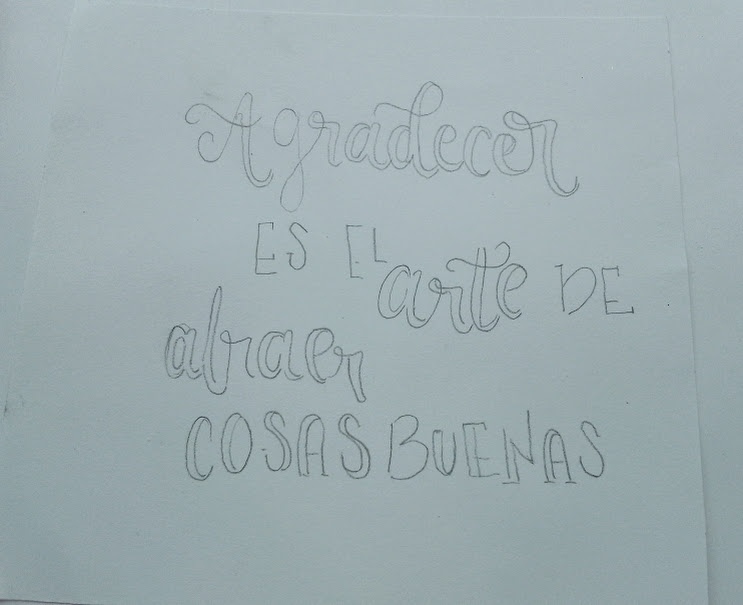 Agradecer
ES EL arte DE
atraer
COSAS BUENAS